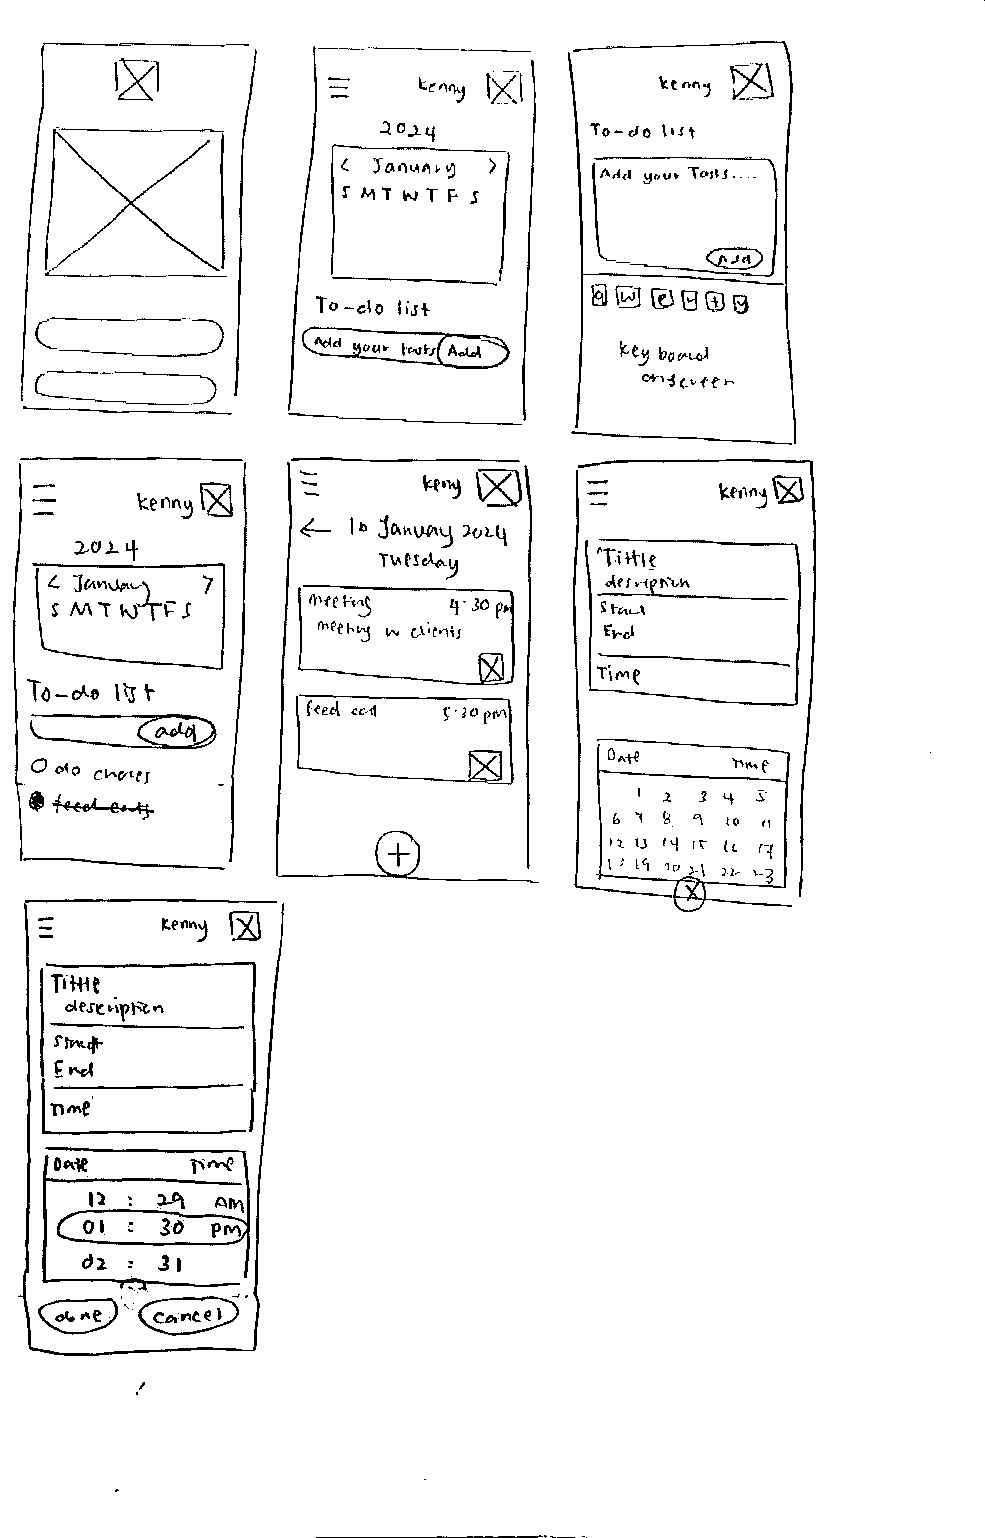 kenny
2024
< January >
S M T W T F S
To-do list
Add your tasks Add
kenny
To-do list
Add your Tasks....
Add
q w e r t y
keyboard
onscreen
kenny
2024
< January >
S M T W T F S
To-do list
add
do chores
feed cats
keny
← 10 January 2024
Tuesday
meeting 4:30 pm
meeting w clients
feed cat 5:30 pm
+
kenny
Tittle
description
Start
End
Time
Date Time
1 2 3 4 5
6 7 8 9 10 11
12 13 14 15 16 17
18 19 20 21 22 23
X
kenny
Tittle
description
Start
End
Time
Date Time
12 : 29 AM
01 : 30 PM
02 : 31
done cancel